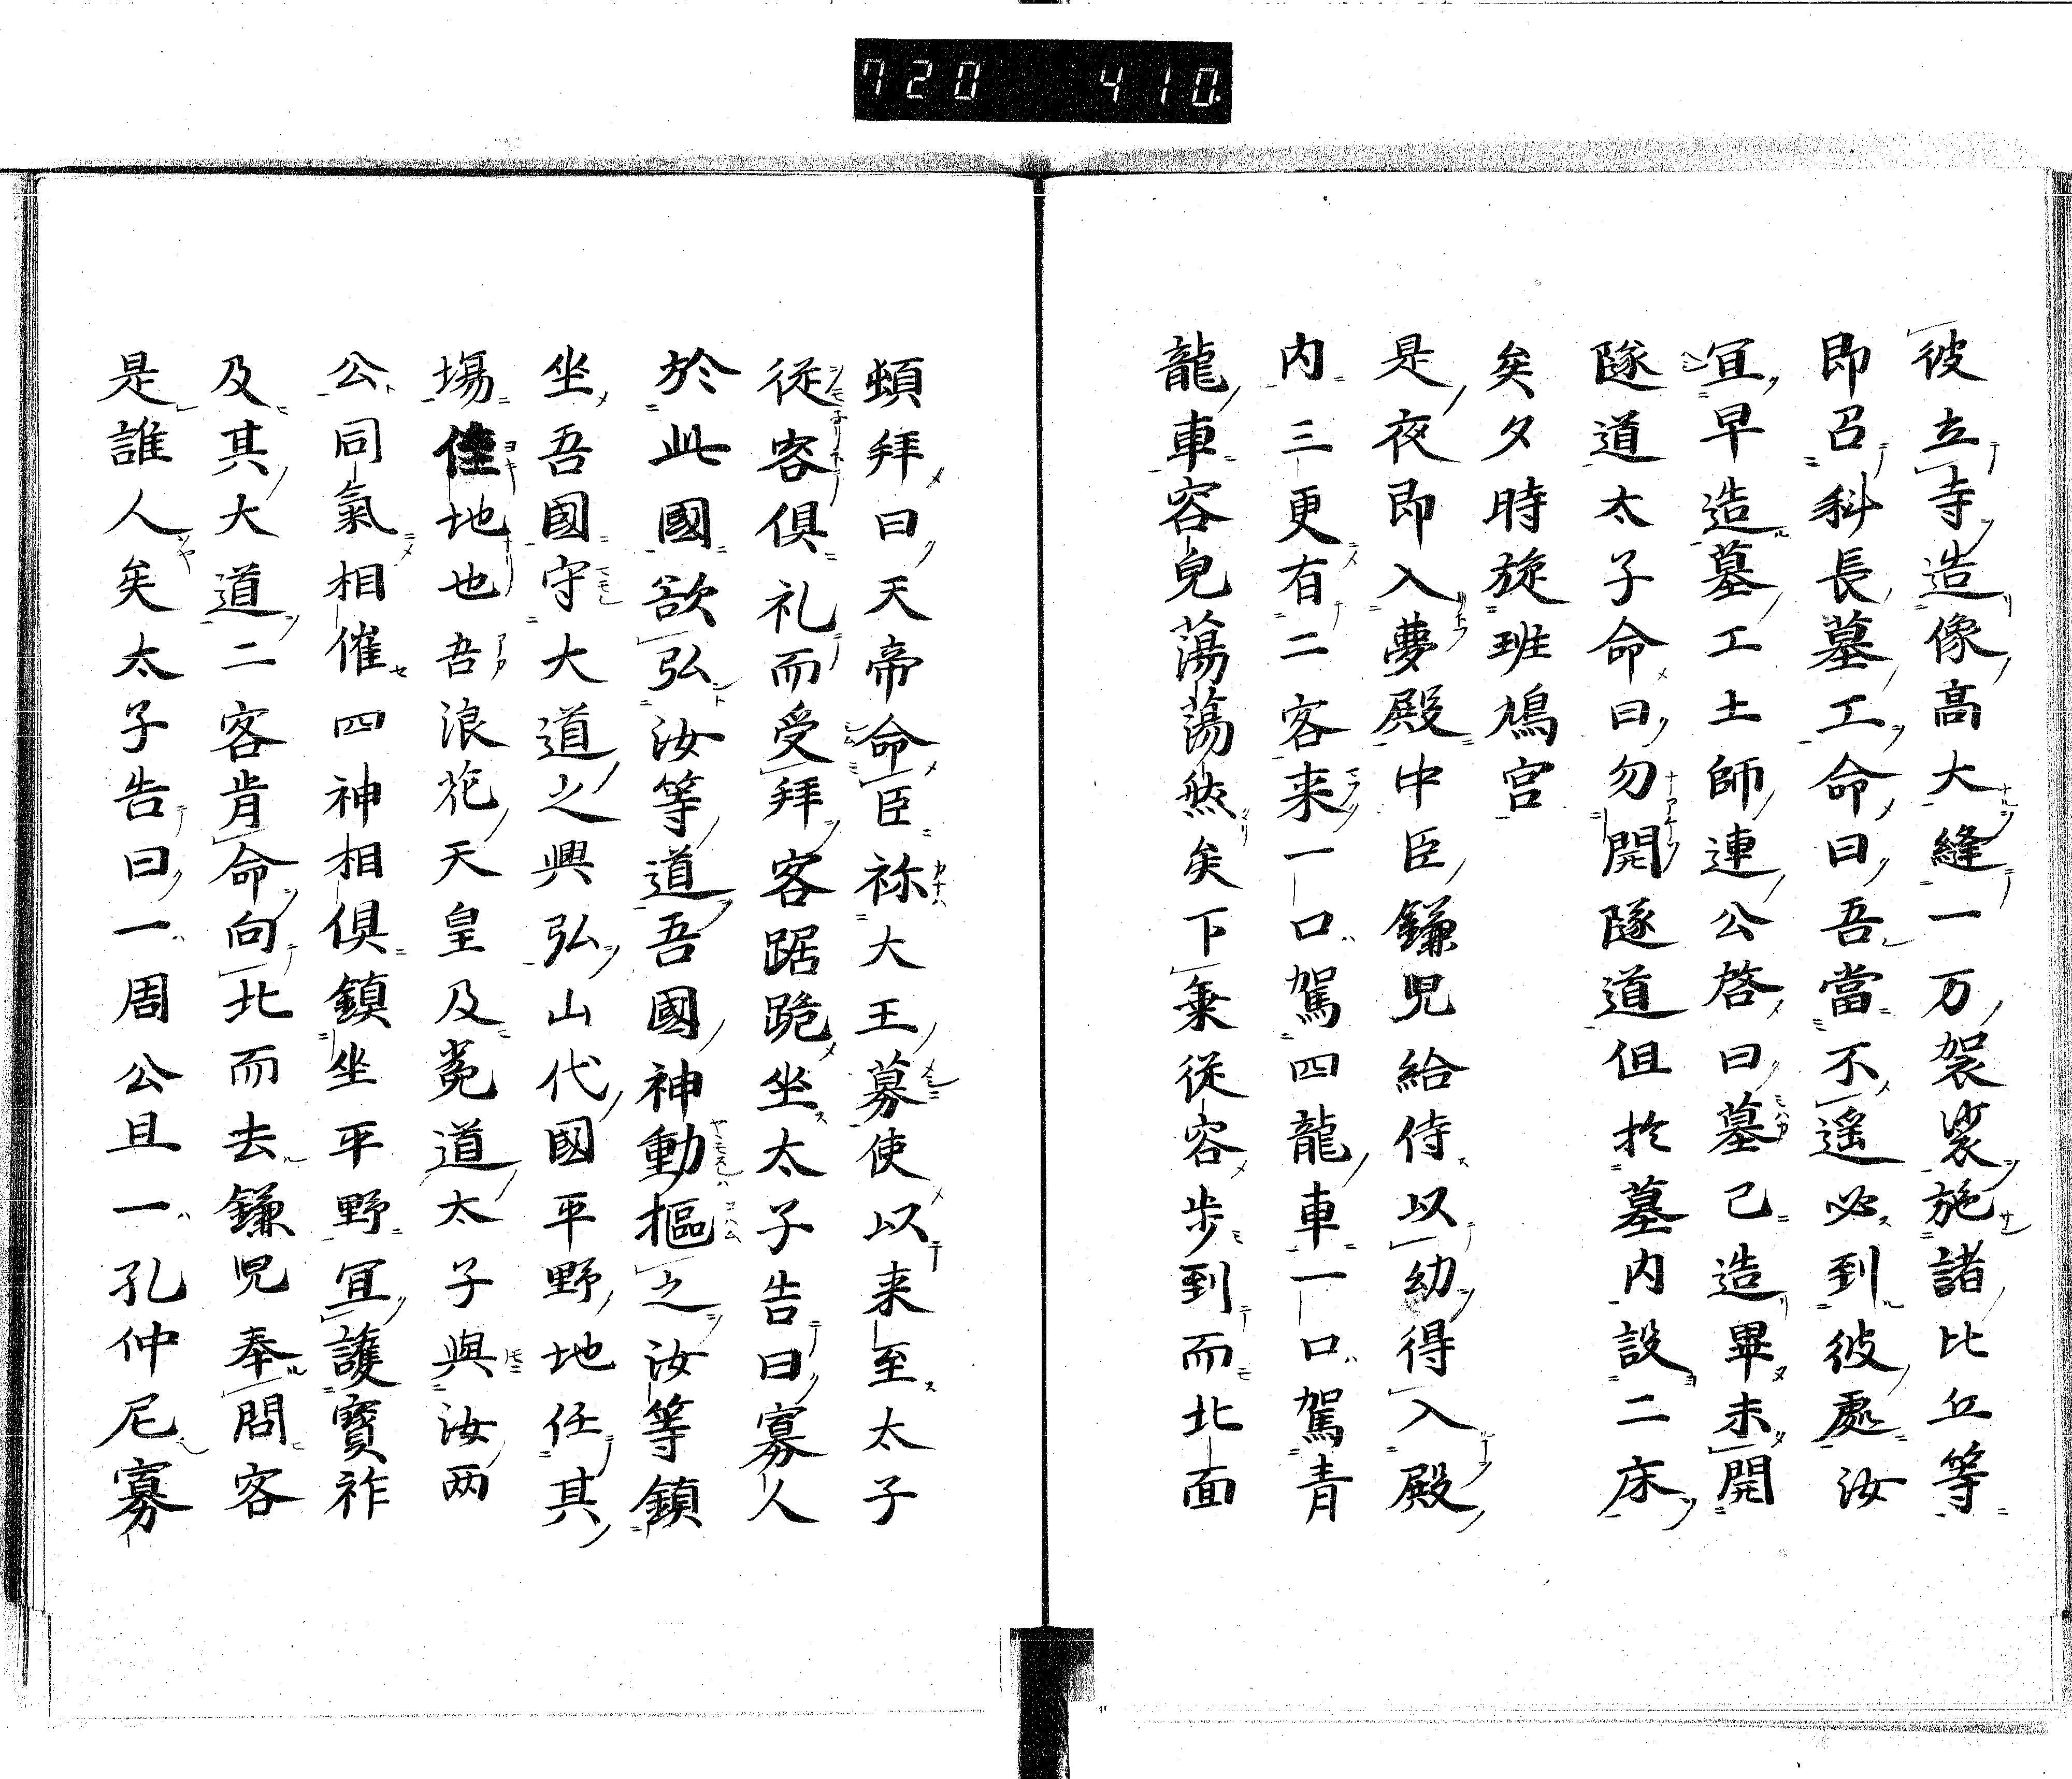 720 410
彼立寺造像高大縫一万袈裟施諸比丘等
即召科長墓工命曰吾當不遥必到彼處汝
宜早造墓工土師連公啓曰墓已造畢未開
隧道太子命曰勿開隧道但於墓内設二床
矣夕時旋班鳩宮
是夜即入夢殿中臣鎌児給侍以幼得入殿
内三更有二客来一口駕四龍車一口駕青
龍車容皃蕩蕩然矣下乗従容歩到而北面
頓拜曰天帝命臣祢大王募使以来至太子
従容倶礼而受拜客踞跪坐太子告曰寡人
於此國欲弘汝等道吾國神動樞之汝等鎮
坐吾國守大道之興弘山代國平野地任其
場佳地也吾浪花天皇及菟道太子與汝两
公同氣相催四神相倶鎮坐平野宜護寶祚
及其大道二客肯命向北而去鎌児奉問客
是誰人矣太子告曰一周公旦一孔仲尼寡